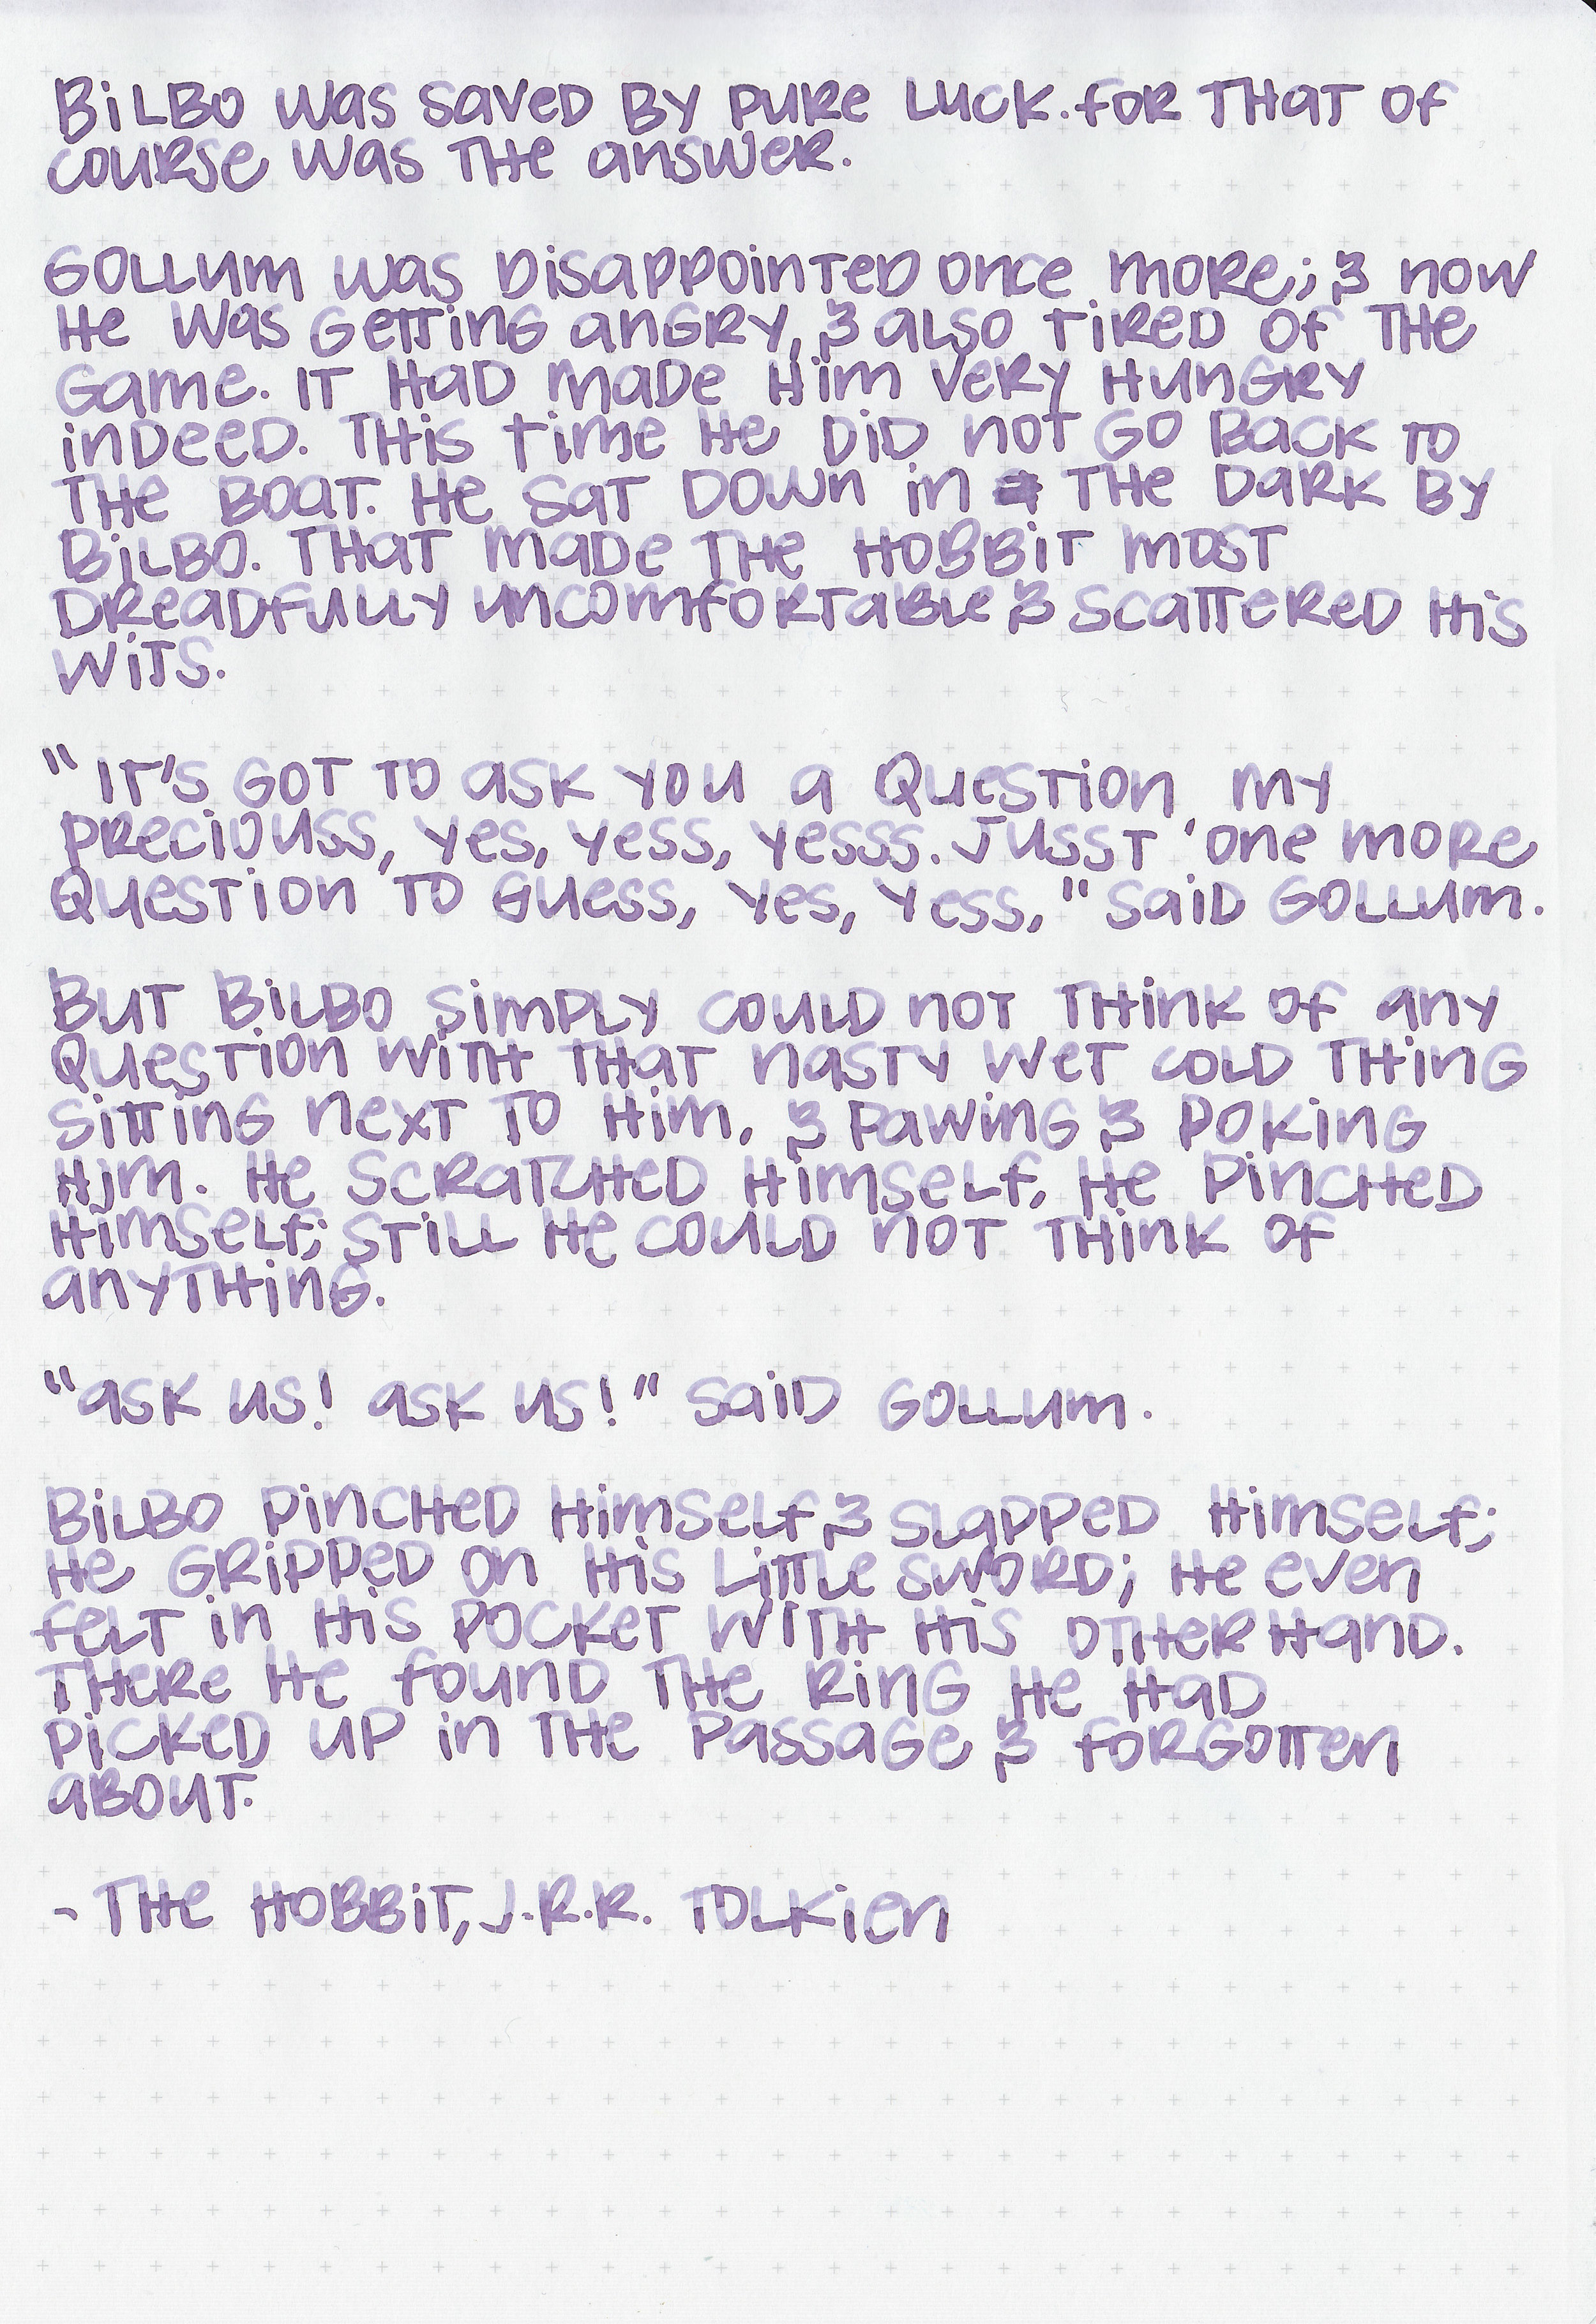 Bilbo was saved by pure luck. For that of
course was the answer.
Gollum was disappointed once more; & now
he was getting angry, & also tired of the
game. It had made him very hungry
indeed. This time he did not go back to
the boat. He sat down in the dark by
Bilbo. That made the hobbit most
dreadfully uncomfortable & scattered his
wits.
"It's got to ask you a question my
preciouss, yes, yess, yesss. Jusst one more
question to guess, yes, yess," said Gollum.
But Bilbo simply could not think of any
question with that nasty wet cold thing
sitting next to him, & pawing & poking
him. He scratched himself, he pinched
himself; still he could not think of
anything.
"Ask us! ask us!" said Gollum.
Bilbo pinched himself & slapped himself;
he gripped on his little sword; he even
felt in his pocket with his other hand.
There he found the ring he had
picked up in the passage & forgotten
about.
- The Hobbit, J.R.R. Tolkien